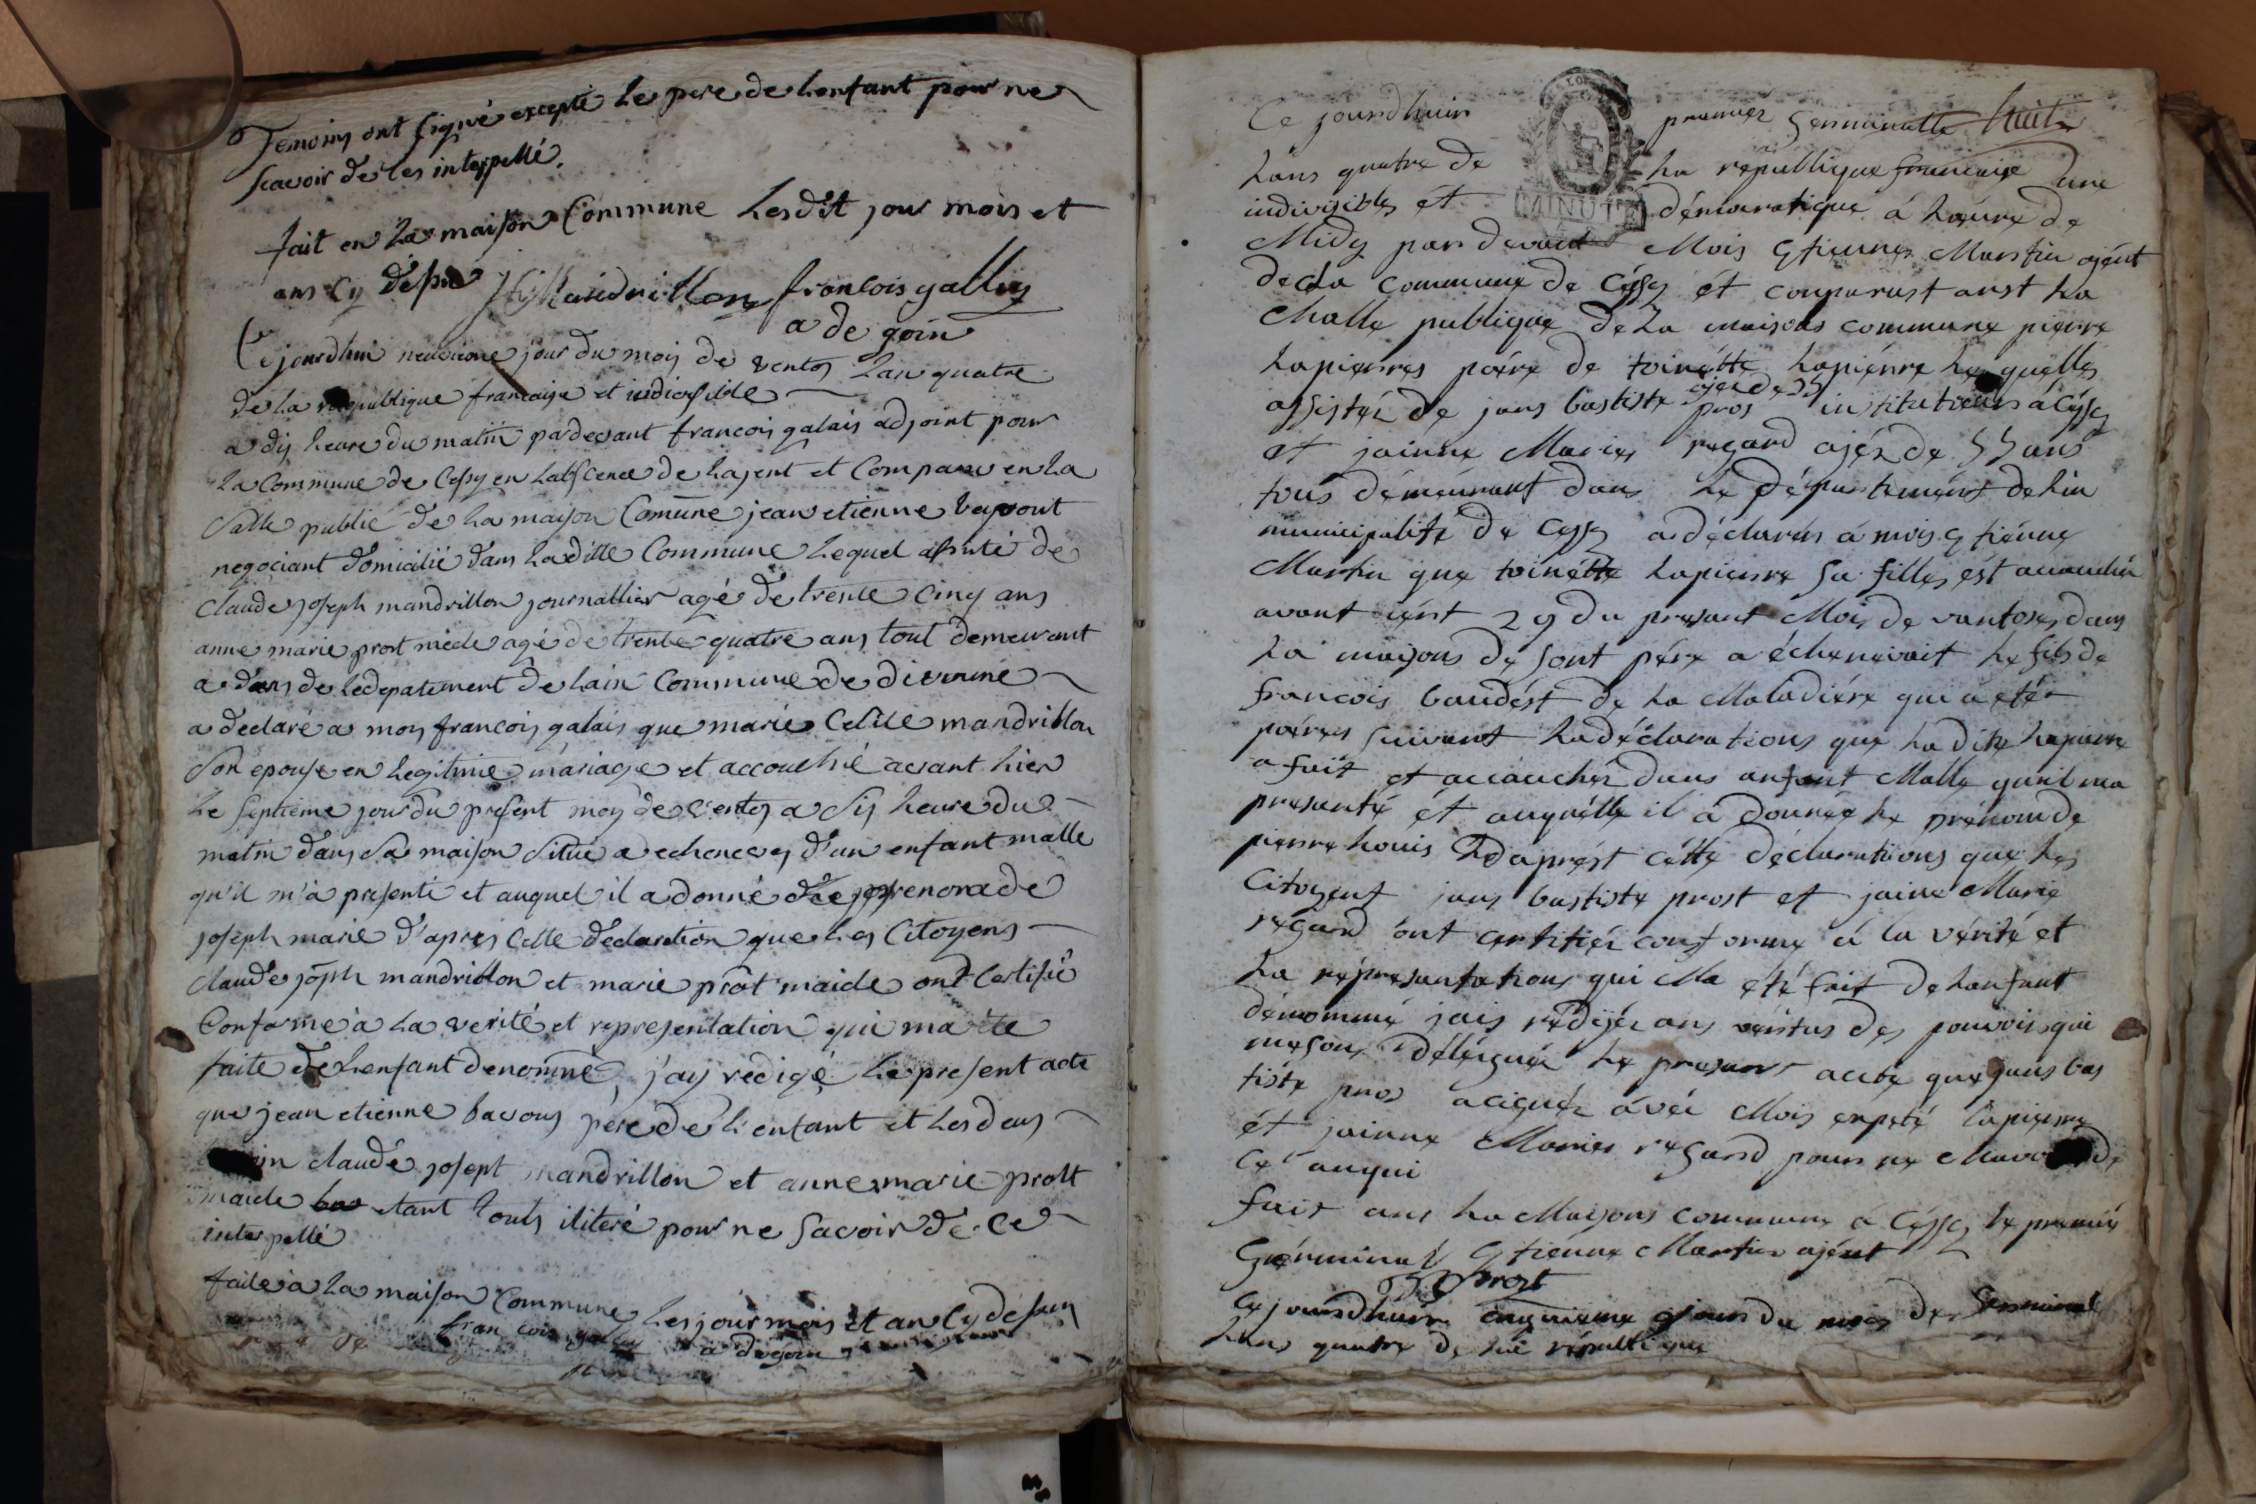 Temoins ont signé excepté le pere de lenfant pour ne
scavoir de les interpellé.
fait en la maison Commune lesdit jour mois et
ans cy desu françois gallay
a de goin
Ce jourdhui neuvieme jour du mois de ventos lan quatre
de la republique francaise et indivisible
a dix heure du matin pardevant francois galais adjoint pour
la Commune de Cessy en labscence de lajent et Comparu en la
salle public de la maison Comune jean etienne
negociant domicilié dans laditte Commune lequel assisté de
Claude joseph mandrillon journallier agé de trente cinq ans
anne marie prost agé de trente quatre ans tout demeurant
a dans de ledepatement de lain Commune de divonne
a declaré a moy francois galais que marie mandrillon
son epouse en legitime mariage et accouché avant hier
le septieme jour du present moy de ventos a six heure du
matin dans sa maison situé a echenevex d'un enfant malle
qu'il m'a presenté et auquel il a donné prenom de
joseph marie d'apres Cette declaration que les Citoyens
claude joseph mandrillon et marie prost maide ont Certifié
Conforme a la verité et representation qui ma ete
faite de lenfant denommé j'ay redigé le present acte
que jean etienne pere de l'enfant et les deus
claude joseph mandrillon et anne marie prost
maide etant touts iliteré pour ne savoir de ce
interpellé
faite a la maison Commune les jour mois et an cy desus
francois a de goin
Ce jourdhuin premier huit
lans quatre de la republique francaise une
MINUTE
indivisibles et démocratique á haeure de
Midy par devant Mois Etienne Martin ajent
de la commune de Céssy ét conparust anst la
challe publique de la maisons commune pierre
lapierres paére de toinétte lapiérre le quelles
ajez de 25
assistéz de jans bastiste pros institutieurs á Céssy
et jainne Maries regard ajéz de 55 ans
tous démeurant dans le département de lin
municipalité de Cessy a déclurés á mois Etiénne
Martin que toinétte lapierre sa filles ést
avant iért 29 du presant Mois de vantoses dans
la maisons de sont pére a échenevait le fils de
francois baudést de la Maladiére qui a étér
paéres suivant la déclarations que la dite lapierre
a fait et accauchéz duns anfant Malle qu'il ma
presanté ét auquélle il á donnée le prénom de
pierre louis daprést cétte déclarations que les
Citoyent jans bastiste prost et jaine Marie
regard ónt certifiéz conforme á la vérité et
la représantations qui Ma eté fait de lanfant
dénommé jais rédijéz ans véirtus des pouvoirs qui
me sons déléigués le presant acite que jans bas
tiste pros aciguéz ávéc Mois lapierre
ét jainne Maries regard pour ne
ce auqui
fait ans la Maisons commune á Céssy le premié
Gérminal Etiénne Martin ajént
Prost
Ce jourdhuis cinquieme jours du mois de Germinal
lans quatre de la republique